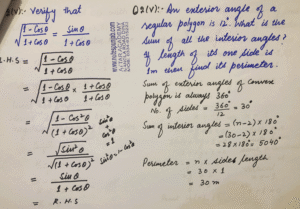 Q3(iv):- Verify that
√(1-Cosθ / 1+Cosθ) = Sinθ / 1+Cosθ
L.H.S = √(1-Cosθ / 1+Cosθ)
= √(1-Cosθ / 1+Cosθ × 1+Cosθ / 1+Cosθ)
= √(1-Cos²θ / (1+Cosθ)²)
= √Sin²θ / √(1+Cosθ)²
Sin²θ = 1-Cos²θ
= Sinθ / 1+Cosθ
= R.H.S
Q3(v):- An exterior angle of a
regular polygon is 12. What is the
sum of all the interior angles?
If length of its one side is
1m then find its perimeter.
Sum of exterior angles of Convex
polygon is always 360°
No. of sides = 360° / 12 = 30°
Sum of interior angles = (n-2) × 180°
= (30-2) × 180°
= 28×180 = 5040°
Perimeter = n × sides length
= 30 × 1
= 30 m